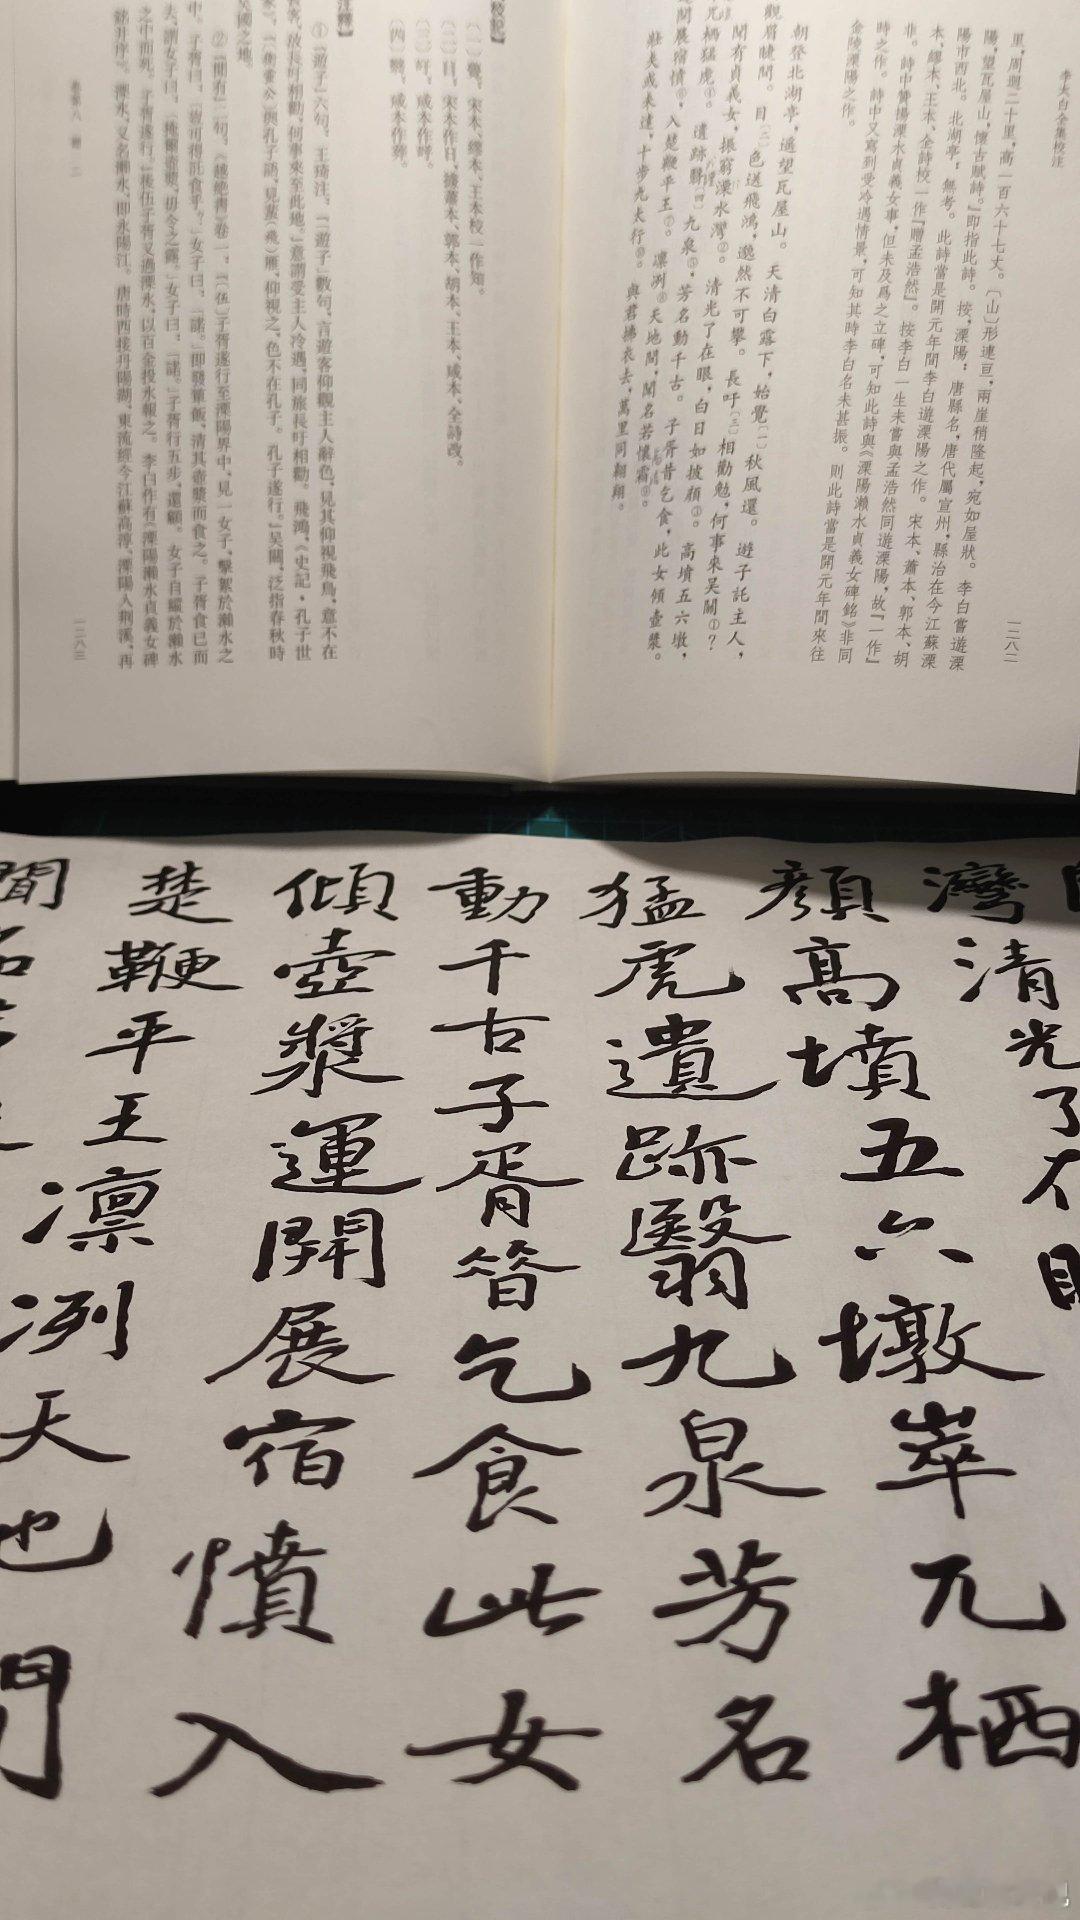 李太白全集校注
一二八二
里,周迴二十里,高一百六十七丈。〔山〕形連亘,兩崖稍隆起,宛如屋狀。李白嘗遊溧
陽,望瓦屋山,懷古賦詩。』即指此詩。按,溧陽:唐縣名,唐代屬宣州,縣治在今江蘇溧
陽市西北。北湖亭:無考。此詩當是開元年間李白遊溧陽之作。宋本、蕭本、郭本、胡
本、繆本、王本、全詩校:一作『贈孟浩然』。按李白一生未嘗與孟浩然同遊溧陽,故『一作』
非。詩中贊揚溧水貞義女事,但未及爲之立碑,可知此詩與《溧陽瀨水貞義女碑銘》非同
時之作。詩中又寫到受冷遇情景,可知其時李白名未甚振。則此詩當是開元年間來往
金陵溧陽之作。
朝登北湖亭,遥望瓦屋山。天清白露下,始覺〔一〕秋風還。遊子託主人,
觀眉睫間。目〔二〕色送飛鴻,邈然不可攀。長吁〔三〕相勸勉,何事來吳關①?
聞有貞義女,振窮溧水灣②。清光了在眼,白日如披顔③。高墳五六墩,
兀栖猛虎④。遺跡翳〔四〕九泉⑤,芳名動千古。子胥昔乞食,此女傾壺漿。
開展宿憤⑥,入楚鞭平王⑦。凛冽⑧天地間,聞名若懷霜⑨。
壯夫或未達,十步九太行⑩。與君拂衣去,萬里同翱翔。
校記】
〔一〕覺,宋本、繆本、王本校:一作知。
〔二〕目,宋本作日,據蕭本、郭本、胡本、王本、咸本、全詩改。
〔三〕吁,咸本作呼。
〔四〕翳,咸本作殪。
注釋】
①『遊子』六句,王琦注:『『遊子』數句,言遊客仰觀主人辭色,見其仰視飛鳥,意不在
客,故長吁相勸,何事來至此地。』意謂受主人冷遇,同旅長吁相勸。飛鴻,《史記·孔子世
家》:『(衛靈公)與孔子語,見蜚(飛)雁,仰視之,色不在孔子。孔子遂行。』吳關,泛指春秋時
吳國之地。
②『聞有』二句,《越絶書》卷一:『(伍)子胥遂行至溧陽界中,見一女子,擊絮於瀨水之
中。子胥曰:『豈可得託食乎?』女子曰:『諾。』即發簞飯,清其壺漿而食之。子胥食已而
去,謂女子曰:『掩爾壺漿,毋令之露。』女子曰:『諾。』子胥行五步,還顧。女子自縱於瀨水
之中而死。子胥遂行。』後伍子胥又過溧水,以百金投水報之。李白作有《溧陽瀨水貞義女碑
銘并序》。溧水,又名瀨水,即永陽江。唐時西接丹陽湖,東流經今江蘇高淳、溧陽入荆溪,再
一二八三
灣清光了在眼
顔高墳五六墩崒兀栖
猛虎遺跡翳九泉芳名
動千古子胥昔乞食此女
傾壺漿運開展宿憤入
楚鞭平王凛冽天地間
聞名若